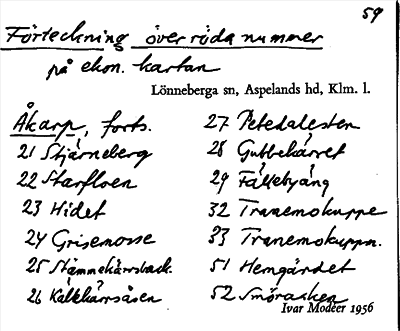 59
Förteckning över röda nummer
på ekon. kartan
Lönneberga sn, Aspelands hd, Klm. l.
Åkarp, forts.
21 Stjärneberg
22 Starfloen
23 Hidet
24 Grisemosse
25 Stämmekärrsback.
26 Kalkkärrsåsen
27 Petedalesten
28 Gubbekärret
29 Fällebyäng
32 Tranemokuppe
33 Tranemokuppn.
51 Hemgärdet
52
Ivar Modéer 1956